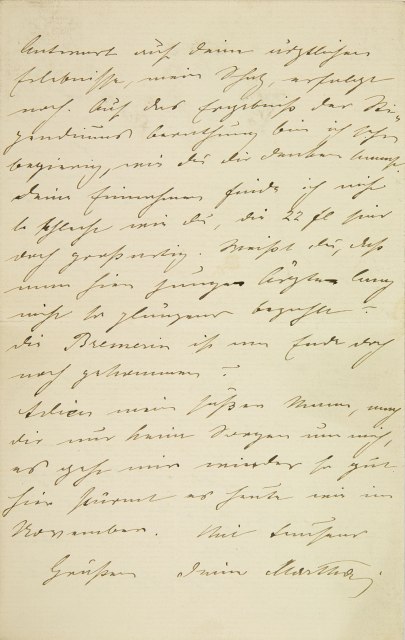 Antwort auf deine ärztlichen
Erlebnisse, mein Schatz, erfolgt
noch. Auf das Ergebniß der Sti-
pendiumsberathung bin ich sehr
begierig, wie du dir denken kannst.
Deine Einnahmen finde ich nicht
so schlecht wie du, die 22 fl sind
doch großartig. Weißt du, daß
man hier junge Ärzte lang
nicht so glänzend bezahlt?
die Bremerin ist am Ende doch
noch gekommen?
Adieu mein süßer Mann, mach
dir nur keine Sorgen um mich,
es geht mir wieder so gut.
hier stürmt es heute wie im
November. Mit tausend
Grüßen deine Martha